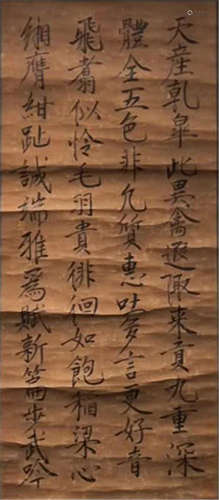 天產乾皐此異禽遐陬来貢九重深
體全五色非凢質惠吐多言更好音
飛翥似怜毛羽貴徘徊如飽稻粱心
緗膺紺趾誠端雅爲賦新篇步武吟